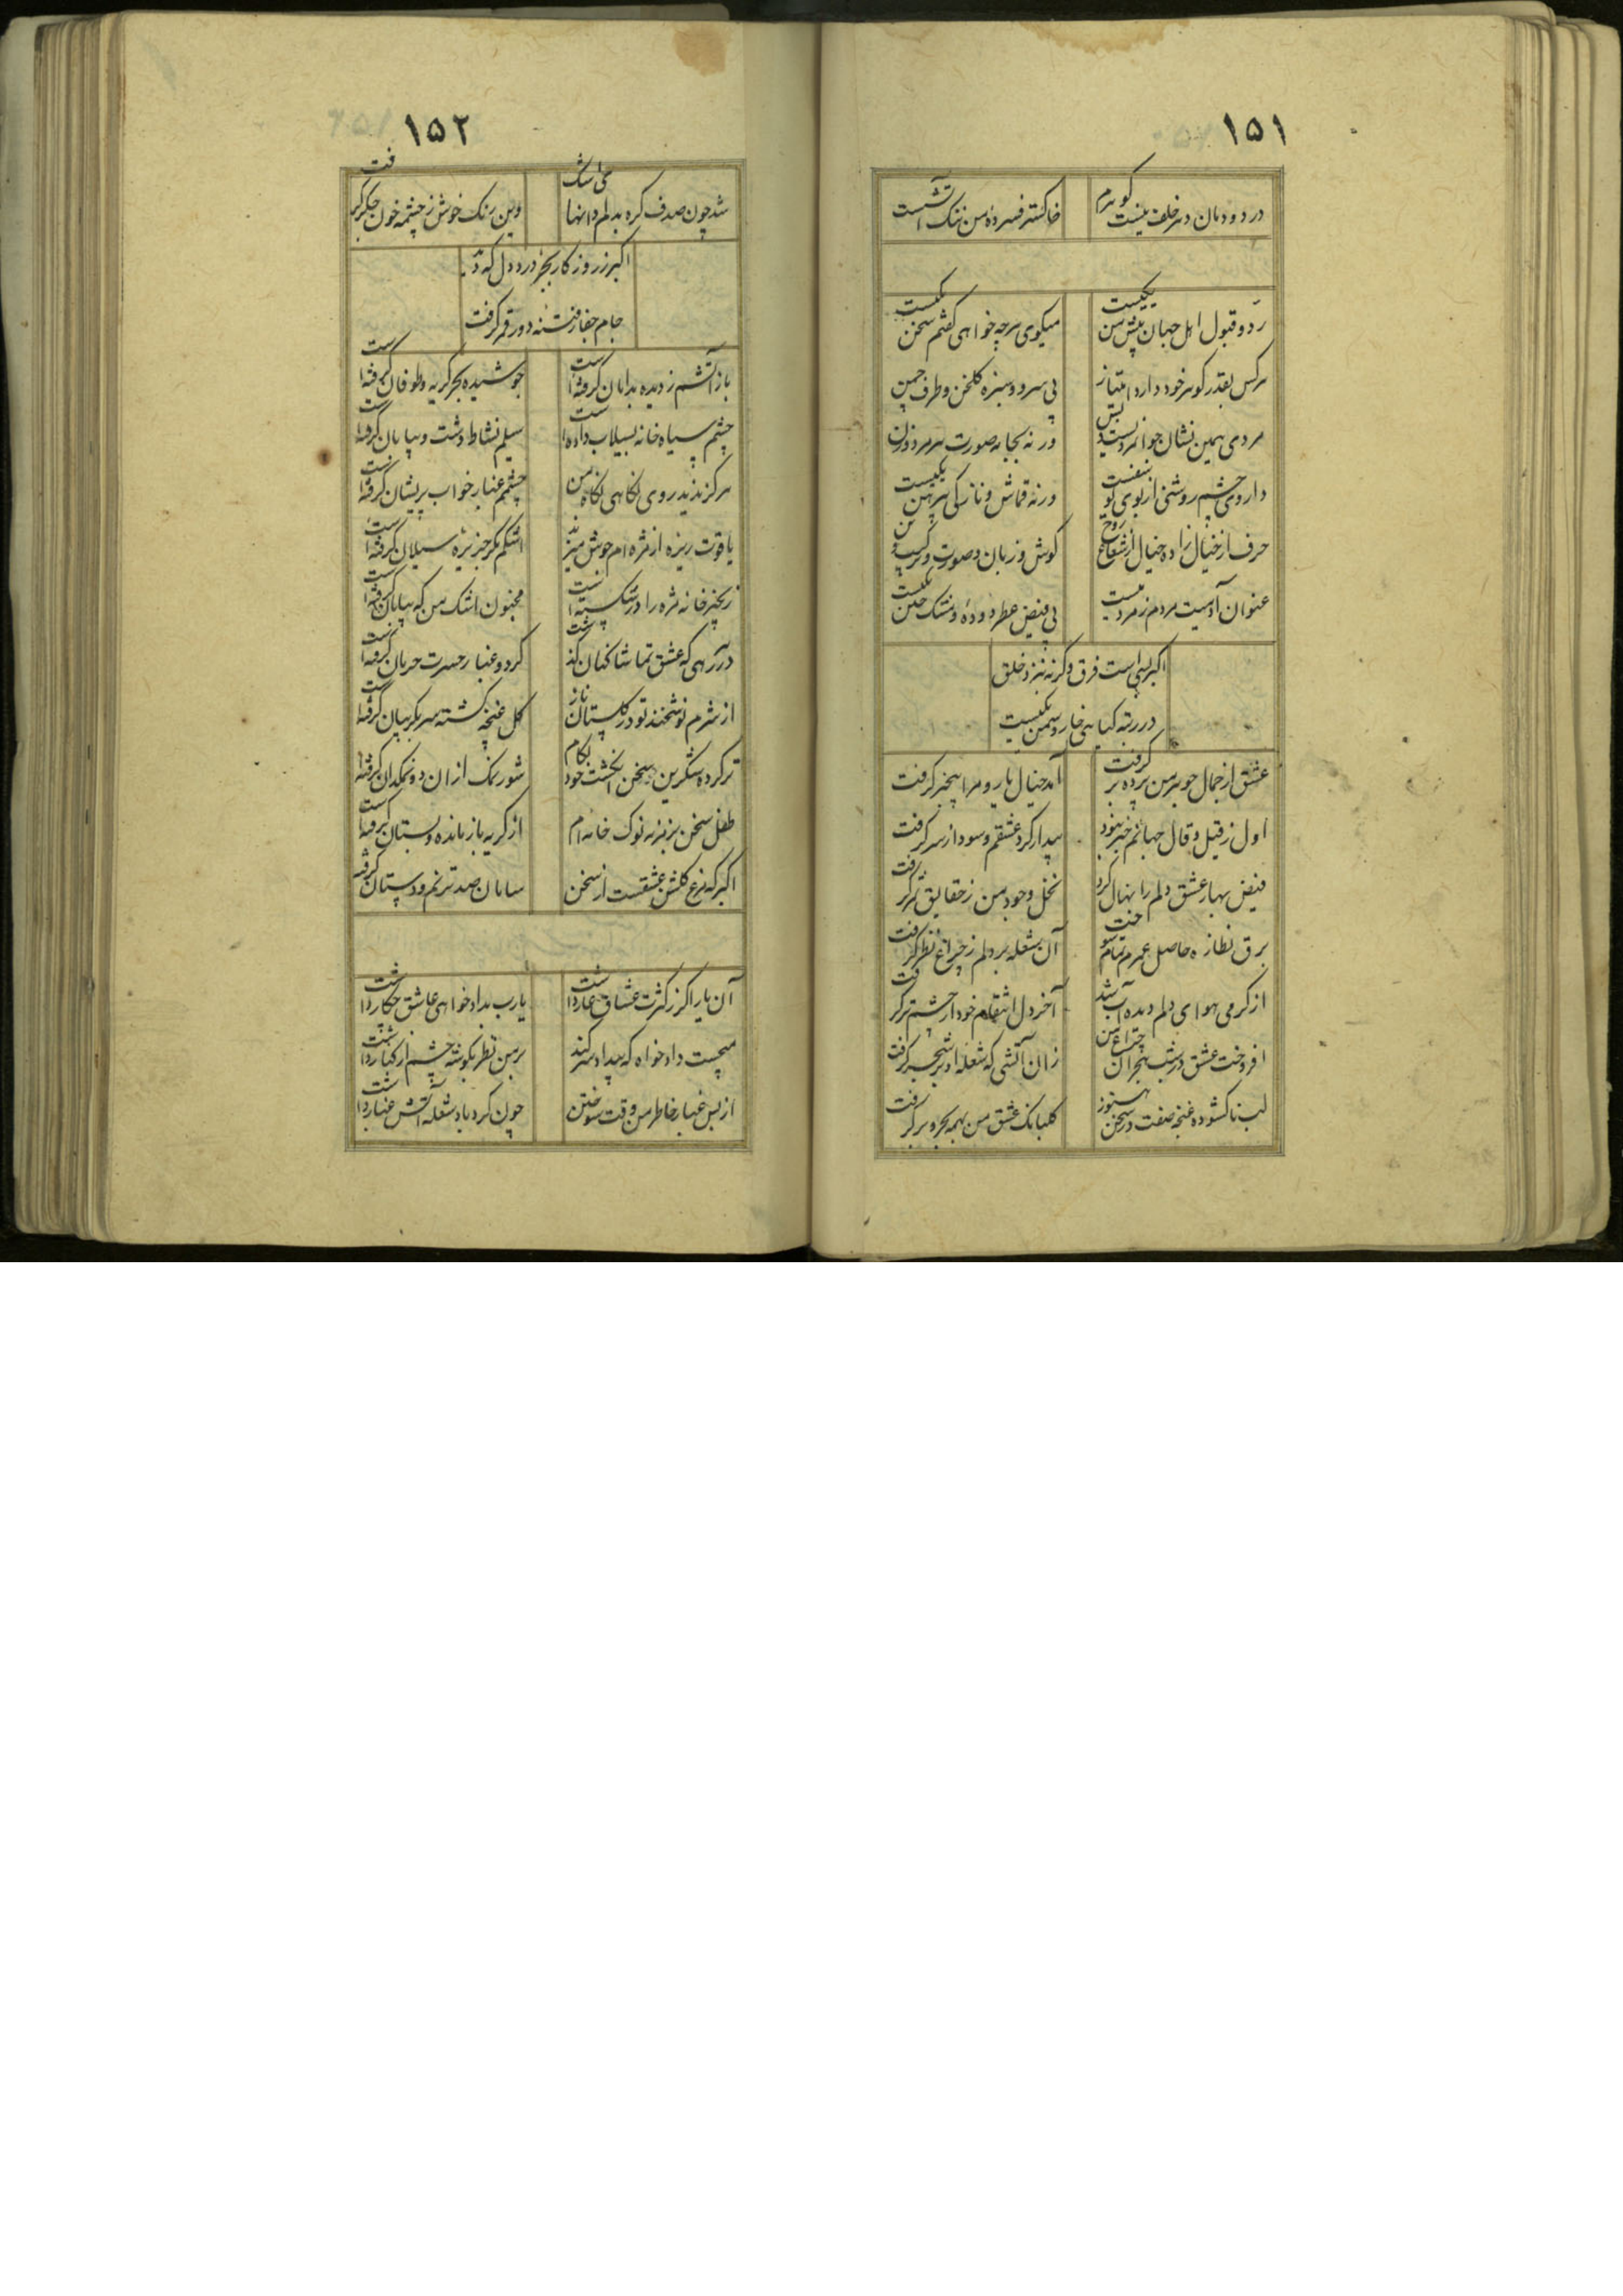 ۱۵۱
در دودمان دهر خلف نیست گوهرم
خاکستر فسرده من ننک آتشست
رد و قبول اهل جهان پیش من یکیست
میکوی هرچه خواهی کفتم سخن یکیست
هرکس بقدر کوهر خود دارد امتیاز
پی سرو و سبزه کلخن و طرف چمن
مردی همین نشان جوانمردیست
ورنه بجا به صورت هر مرد و زن
داروی چشم روشنی از بوی
ورنه قماش و نازکی پیرهن یکیست
حرف از خیال زاده خیال از شعاع روح
کوش و زبان و صورت و
عنوان آدمیت مردم ز مردمیست
بی فیض عطر دوده و مشک ختن یکیست
اکبر بسی است فرق وکرنه بنزد خلق
در رتبه کیاهی خار و سمن یکیست
عشق از جمال جوهر من پرده بر کرفت
آمد خیال یار و مرا بیخبر کرفت
اول ز قیل و قال جهانم خبر نبود
بیدار کرد عشقم و سودا ز سر کرفت
فیض بهار عشق دلم را نهال کرد
نخل وجود من ز حقایق ثمر کرفت
برق نظاره حاصل عمرم تمام سوخت
آن شعله بر دلم ز چراغ نظر کرفت
از کرمی هوای دلم دیده آب شد
آخر دل انتقام خود از چشم تر کرفت
افروخت عشق در شب هجران چراغ من
زان آتشی که شعله او بر شجر کرفت
لب ناکشوده غنچه صفت در سخن هنوز
کلبانک عشق من همه بحر و بر کرفت
۱۵۲
شد چون صدف کره بدلم دانهای اشک
وین رنک خوش ز چشمه خون جکر کرفت
اکبر ز روزکار بجز درد دل که دید
جام جفا ز فتنه دور قمر کرفت
باز آتشم ز دیده بدامان کرفته است
جوشیده بحر کریه و طوفان کرفته است
چشم سیاه خانه بسیلاب داده است
سیلم نشاط دشت و بیابان کرفته است
هرکز ندید روی نکاهی نکاه من
چشمم غبار خواب پریشان کرفته است
یاقوت ریزه از مژه ام جوش میزند
اشکم مکر جزیره سیلان کرفته است
زنجیر خانه مژه را در شکسته است
مجنون اشک من که بیابان کرفته است
در رهی که عشق تماشاکنان کذشت
کرد و غبار حسرت حرمان کرفته است
از شرم نوشخند تو در کلستان ناز
کل غنچه کشته سر بکریبان کرفته است
تر کرده شکرین سخن انکشت خود بکام
شور نمک از ان دو نمکدان کرفته
طفل سخن بزمزمه نوک خامه ام
از کریه باز مانده و پستان کرفته است
اکبر که مرغ کلشن عشقست از سخن
سامان صد ترنم و دستان کرفته
آن یار اکر ز کثرت عشاق عار داشت
یارب بدادخواهی عاشق چکار داشت
میجست دادخواه که بیداد سر کند
بر من نظر بکوشه چشم از کنار داشت
از بس غبار خاطر من وقت سوختن
چون کردباد شعله آتش غبار داشت